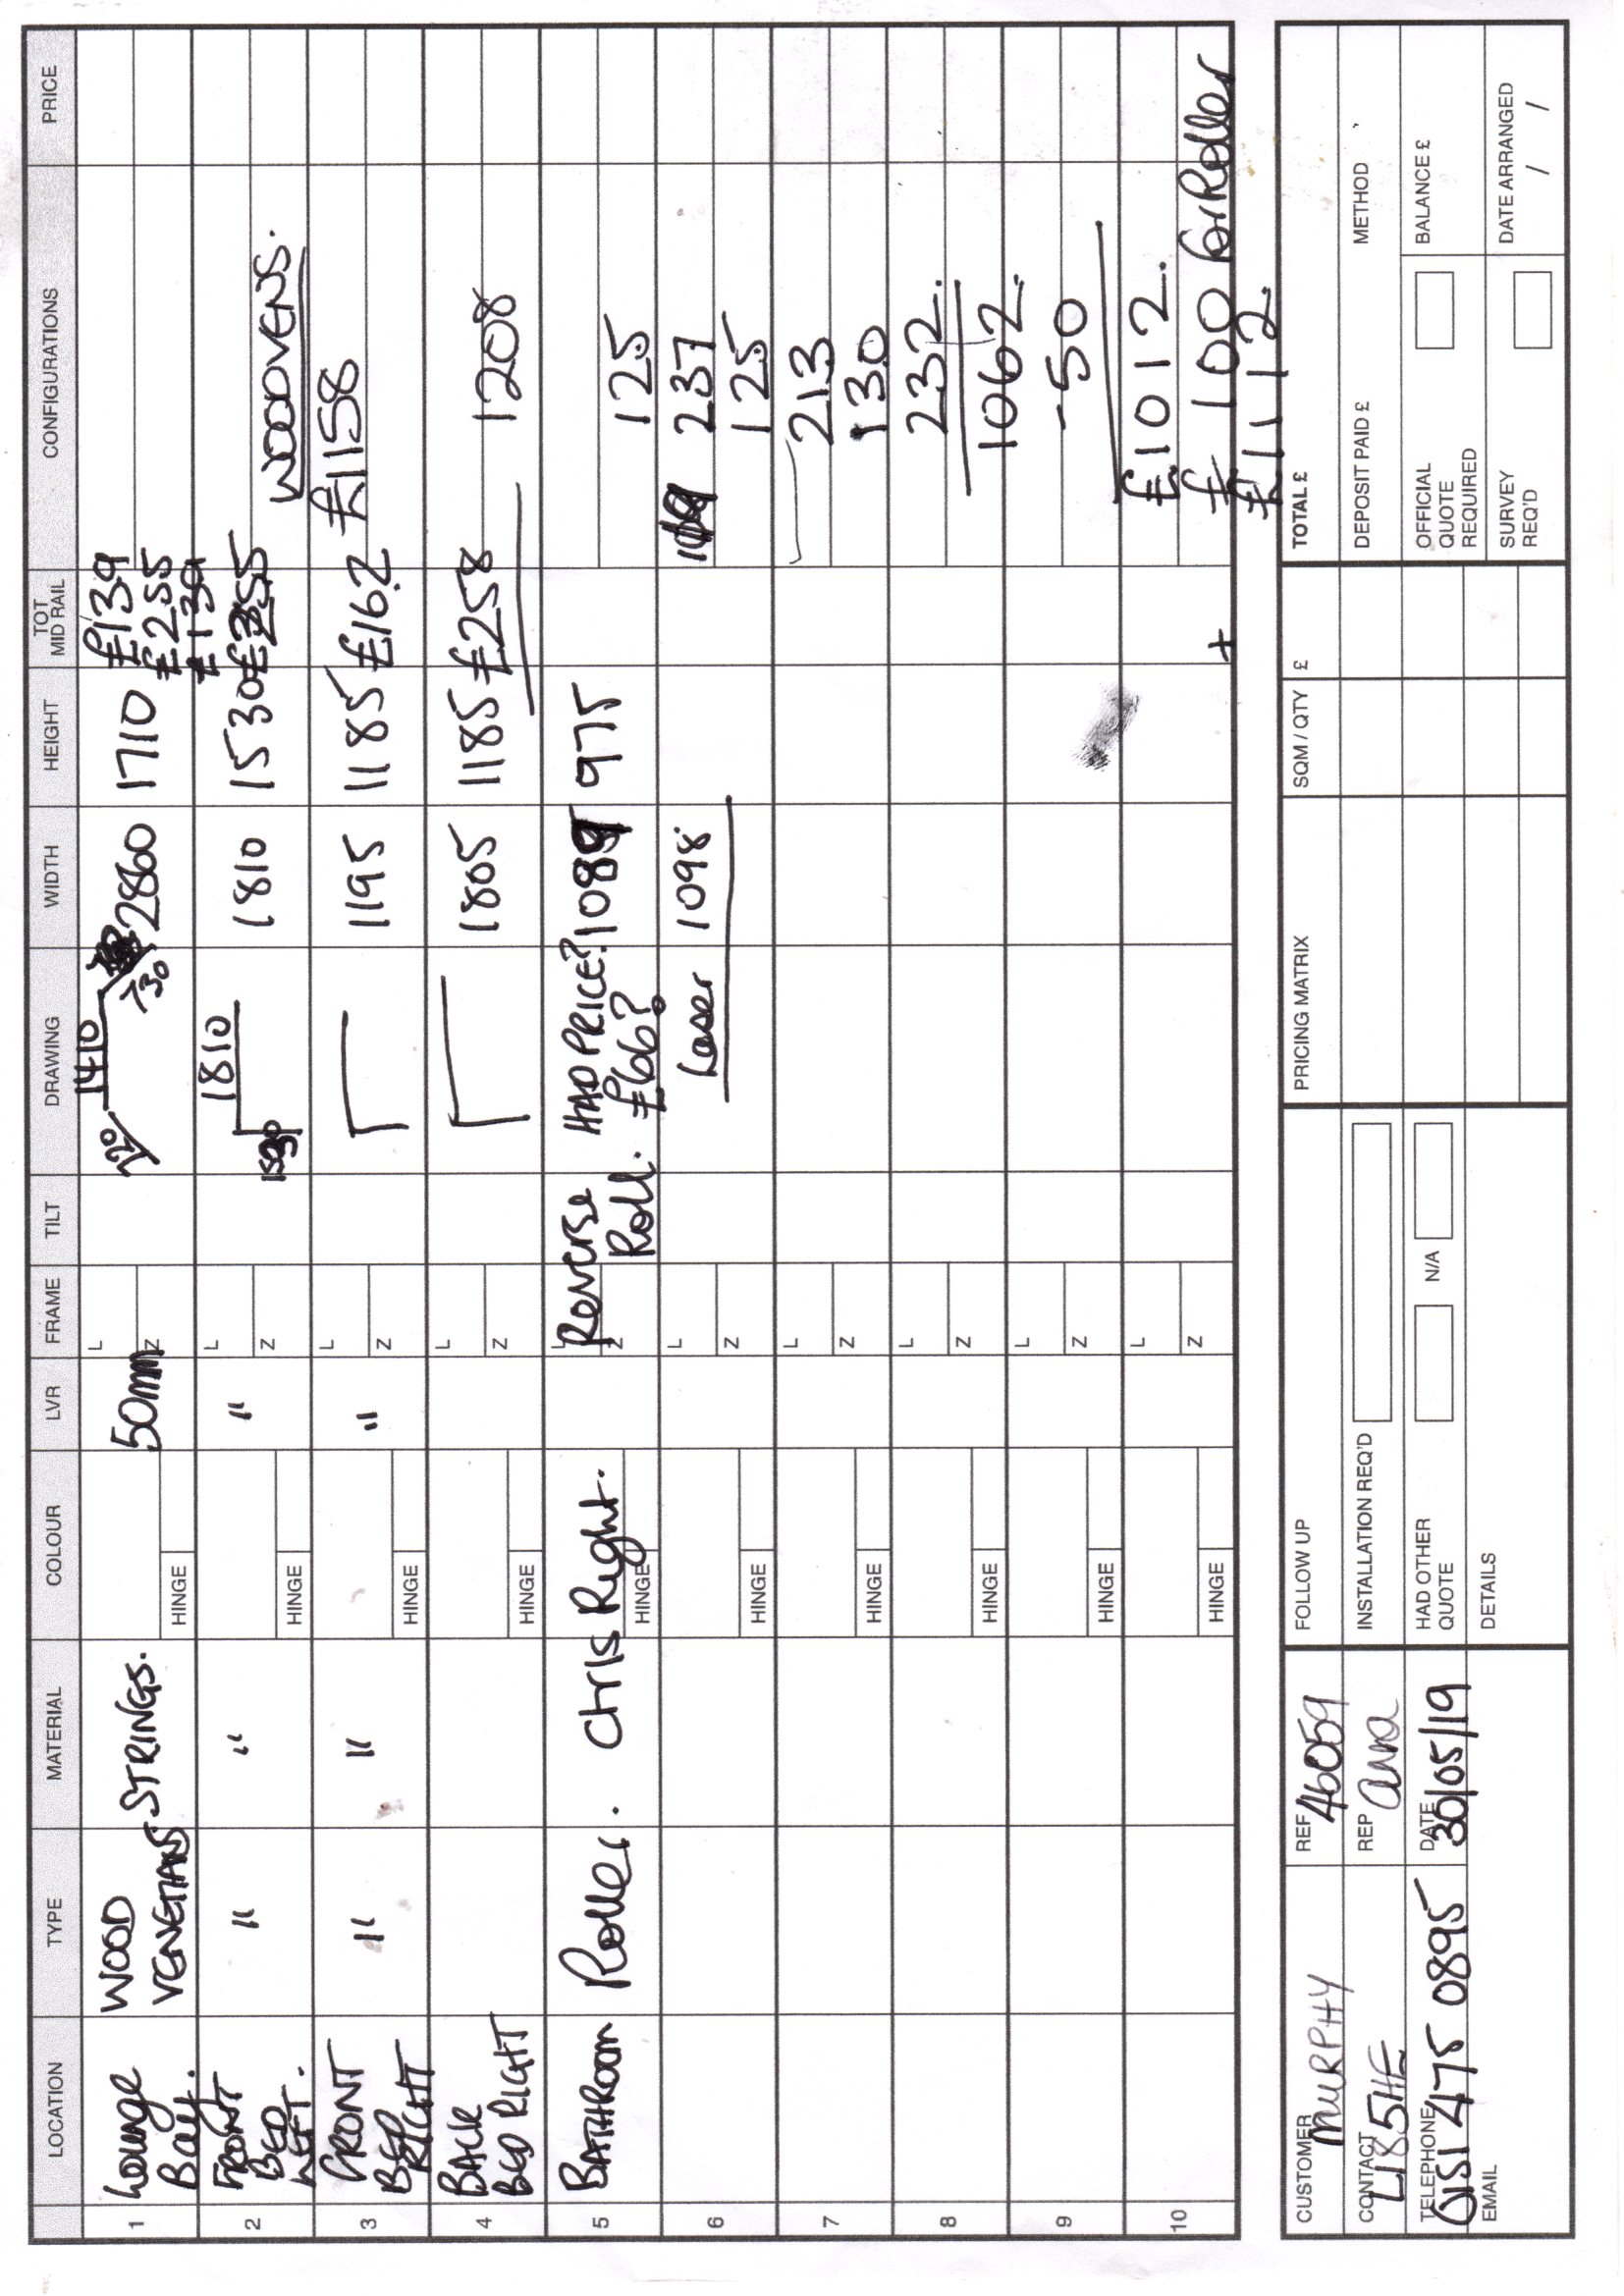 LOCATION TYPE MATERIAL COLOUR LVR FRAME TILT DRAWING WIDTH HEIGHT TOT MID RAIL CONFIGURATIONS PRICE
1 Lounge Bay. WOOD VENETIANS STRINGS. HINGE 50mm L Z 1410 730 2860 1710 £139 £255
2 FRONT BED LEFT. " " HINGE " L Z 1810 1530 1810 1530 £139 £255 WOOVENS.
3 FRONT BED RIGHT " " HINGE " L Z 1195 1185 £162 £1158
4 BACK BED RIGHT HINGE L Z 1805 1185 £258 1208
5 BATHROOM Roller. Chris Right. HINGE L Z Reverse Roll. HAD PRICE? £66? 1089 975 125
6 HINGE L Z Laser 1098 237
125
7 HINGE L Z 213
130
8 HINGE L Z 232.
1062.
9 HINGE L Z -50
10 HINGE L Z £1012.
+ £100 for Roller
£1112.
CUSTOMER MURPHY REF 46059 FOLLOW UP PRICING MATRIX SQM / QTY £ TOTAL £
CONTACT L18 5HE REP anna INSTALLATION REQ'D DEPOSIT PAID £ METHOD
TELEPHONE 0151 475 0895 DATE 30/05/19 HAD OTHER QUOTE N/A OFFICIAL QUOTE REQUIRED BALANCE £
EMAIL DETAILS SURVEY REQ'D DATE ARRANGED / /